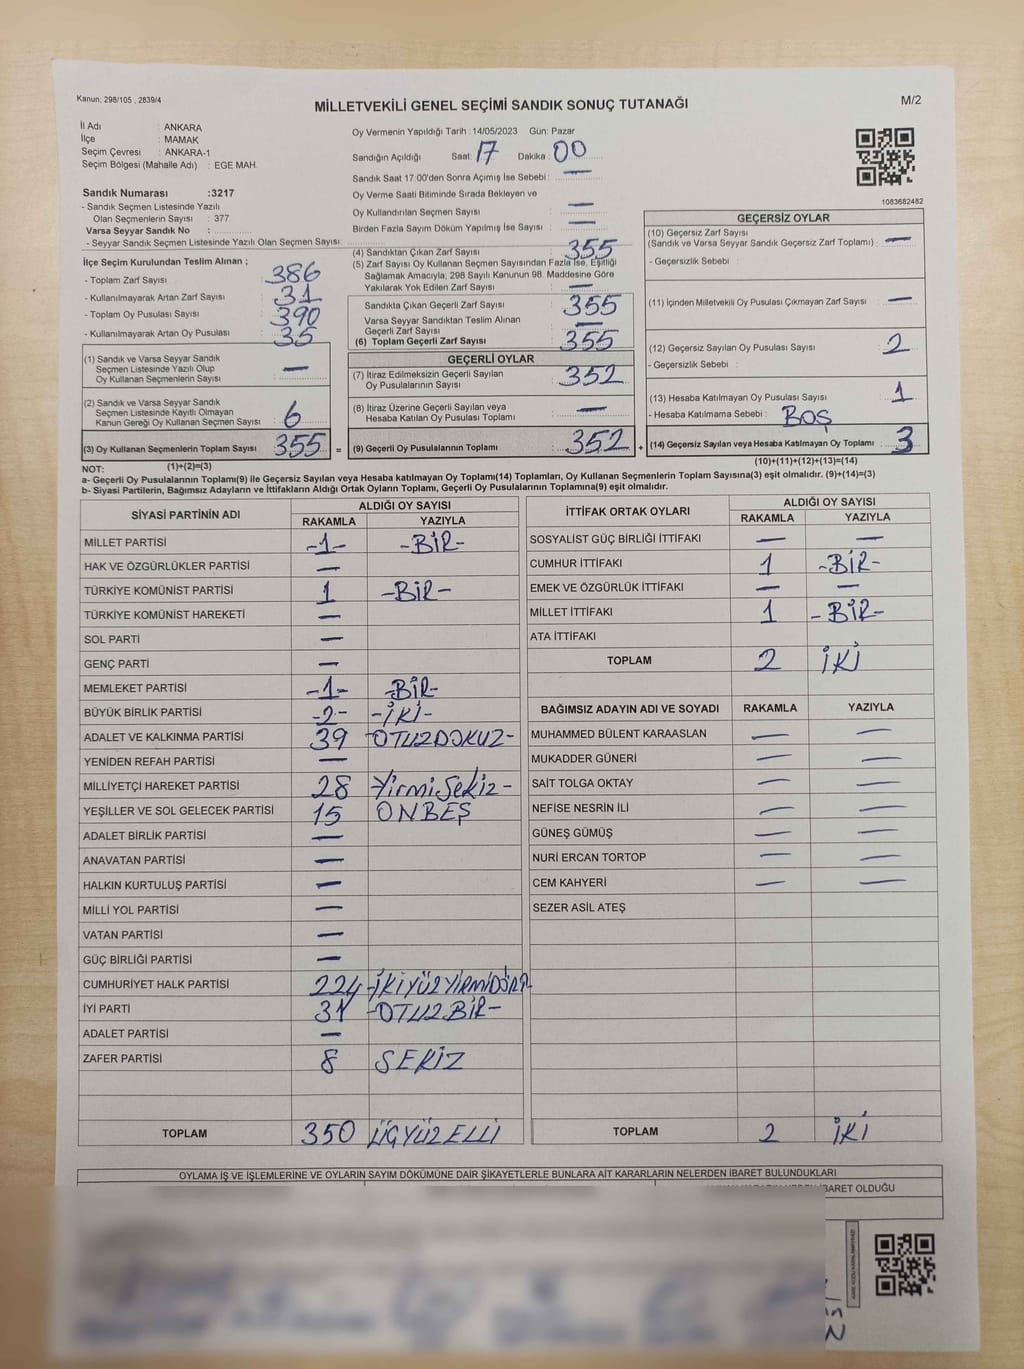 Kanun; 298/105 , 2839/4
MİLLETVEKİLİ GENEL SEÇİMİ SANDIK SONUÇ TUTANAĞI
M/2
İl Adı : ANKARA
İlçe : MAMAK
Seçim Çevresi : ANKARA-1
Seçim Bölgesi (Mahalle Adı) : EGE MAH.
Oy Vermenin Yapıldığı Tarih : 14/05/2023 Gün: Pazar
Sandığın Açıldığı Saat: 17 Dakika : 00
Sandık Saat 17:00'den Sonra Açımış İse Sebebi : —
Oy Verme Saati Bitiminde Sırada Bekleyen ve
Oy Kullandırılan Seçmen Sayısı —
Birden Fazla Sayım Döküm Yapılmış İse Sayısı : —
1083682482
Sandık Numarası :3217
- Sandık Seçmen Listesinde Yazılı
Olan Seçmenlerin Sayısı : 377
Varsa Seyyar Sandık No :
- Seyyar Sandık Seçmen Listesinde Yazılı Olan Seçmen Sayısı:
İlçe Seçim Kurulundan Teslim Alınan ;
- Toplam Zarf Sayısı : 386
- Kullanılmayarak Artan Zarf Sayısı : 31
- Toplam Oy Pusulası Sayısı : 390
- Kullanılmayarak Artan Oy Pusulası : 35
(1) Sandık ve Varsa Seyyar Sandık
Seçmen Listesinde Yazılı Olup
Oy Kullanan Seçmenlerin Sayısı : —
(2) Sandık ve Varsa Seyyar Sandık
Seçmen Listesinde Kayıtlı Olmayan
Kanun Gereği Oy Kullanan Seçmen Sayısı : 6
(3) Oy Kullanan Seçmenlerin Toplam Sayısı : 355 =
(4) Sandıktan Çıkan Zarf Sayısı : 355
(5) Zarf Sayısı Oy Kullanan Seçmen Sayısından Fazla İse, Eşitliği
Sağlamak Amacıyla; 298 Sayılı Kanunun 98. Maddesine Göre
Yakılarak Yok Edilen Zarf Sayısı : —
Sandıkta Çıkan Geçerli Zarf Sayısı : 355
Varsa Seyyar Sandıktan Teslim Alınan
Geçerli Zarf Sayısı : —
(6) Toplam Geçerli Zarf Sayısı : 355
GEÇERLİ OYLAR
(7) İtiraz Edilmeksizin Geçerli Sayılan
Oy Pusulalarının Sayısı : 352
(8) İtiraz Üzerine Geçerli Sayılan veya
Hesaba Katılan Oy Pusulası Toplamı : —
(9) Geçerli Oy Pusulalarının Toplamı : 352 +
GEÇERSİZ OYLAR
(10) Geçersiz Zarf Sayısı
(Sandık ve Varsa Seyyar Sandık Geçersiz Zarf Toplamı) : —
- Geçersizlik Sebebi :
(11) İçinden Milletvekili Oy Pusulası Çıkmayan Zarf Sayısı : —
(12) Geçersiz Sayılan Oy Pusulası Sayısı : 2
- Geçersizlik Sebebi :
(13) Hesaba Katılmayan Oy Pusulası Sayısı : 1
- Hesaba Katılmama Sebebi : BOŞ
(14) Geçersiz Sayılan veya Hesaba Katılmayan Oy Toplamı : 3
NOT: (1)+(2)=(3)
(10)+(11)+(12)+(13)=(14)
a- Geçerli Oy Pusulalarının Toplamı(9) ile Geçersiz Sayılan veya Hesaba katılmayan Oy Toplamı(14) Toplamları, Oy Kullanan Seçmenlerin Toplam Sayısına(3) eşit olmalıdır. (9)+(14)=(3)
b- Siyasi Partilerin, Bağımsız Adayların ve İttifakların Aldığı Ortak Oyların Toplamı, Geçerli Oy Pusulalarının Toplamına(9) eşit olmalıdır.
SİYASİ PARTİNİN ADI ALDIĞI OY SAYISI
RAKAMLA YAZIYLA
MİLLET PARTİSİ -1- -BİR-
HAK VE ÖZGÜRLÜKLER PARTİSİ —
TÜRKİYE KOMÜNİST PARTİSİ 1 -BİR-
TÜRKİYE KOMÜNİST HAREKETİ —
SOL PARTİ —
GENÇ PARTİ —
MEMLEKET PARTİSİ -1- -BİR-
BÜYÜK BİRLİK PARTİSİ -2- -İKİ-
ADALET VE KALKINMA PARTİSİ 39 -OTUZDOKUZ-
YENİDEN REFAH PARTİSİ —
MİLLİYETÇİ HAREKET PARTİSİ 28 -YirmiSekiz-
YEŞİLLER VE SOL GELECEK PARTİSİ 15 ONBEŞ
ADALET BİRLİK PARTİSİ —
ANAVATAN PARTİSİ —
HALKIN KURTULUŞ PARTİSİ —
MİLLİ YOL PARTİSİ —
VATAN PARTİSİ —
GÜÇ BİRLİĞİ PARTİSİ —
CUMHURİYET HALK PARTİSİ 224 -İKİYÜZYİRMİDÖRT-
İYİ PARTİ 31 -OTUZBİR-
ADALET PARTİSİ —
ZAFER PARTİSİ 8 SEKİZ
TOPLAM 350 ÜÇYÜZELLİ
İTTİFAK ORTAK OYLARI ALDIĞI OY SAYISI
RAKAMLA YAZIYLA
SOSYALİST GÜÇ BİRLİĞİ İTTİFAKI — —
CUMHUR İTTİFAKI 1 -BİR-
EMEK VE ÖZGÜRLÜK İTTİFAKI — —
MİLLET İTTİFAKI 1 -BİR-
ATA İTTİFAKI
TOPLAM 2 İKİ
BAĞIMSIZ ADAYIN ADI VE SOYADI RAKAMLA YAZIYLA
MUHAMMED BÜLENT KARAASLAN — —
MUKADDER GÜNERİ — —
SAİT TOLGA OKTAY — —
NEFİSE NESRİN İLİ — —
GÜNEŞ GÜMÜŞ — —
NURİ ERCAN TORTOP — —
CEM KAHYERİ — —
SEZER ASİL ATEŞ
TOPLAM 2 İKİ
OYLAMA İŞ VE İŞLEMLERİNE VE OYLARIN SAYIM DÖKÜMÜNE DAİR ŞİKAYETLERLE BUNLARA AİT KARARLARIN NELERDEN İBARET BULUNDUKLARI
İBARET OLDUĞU